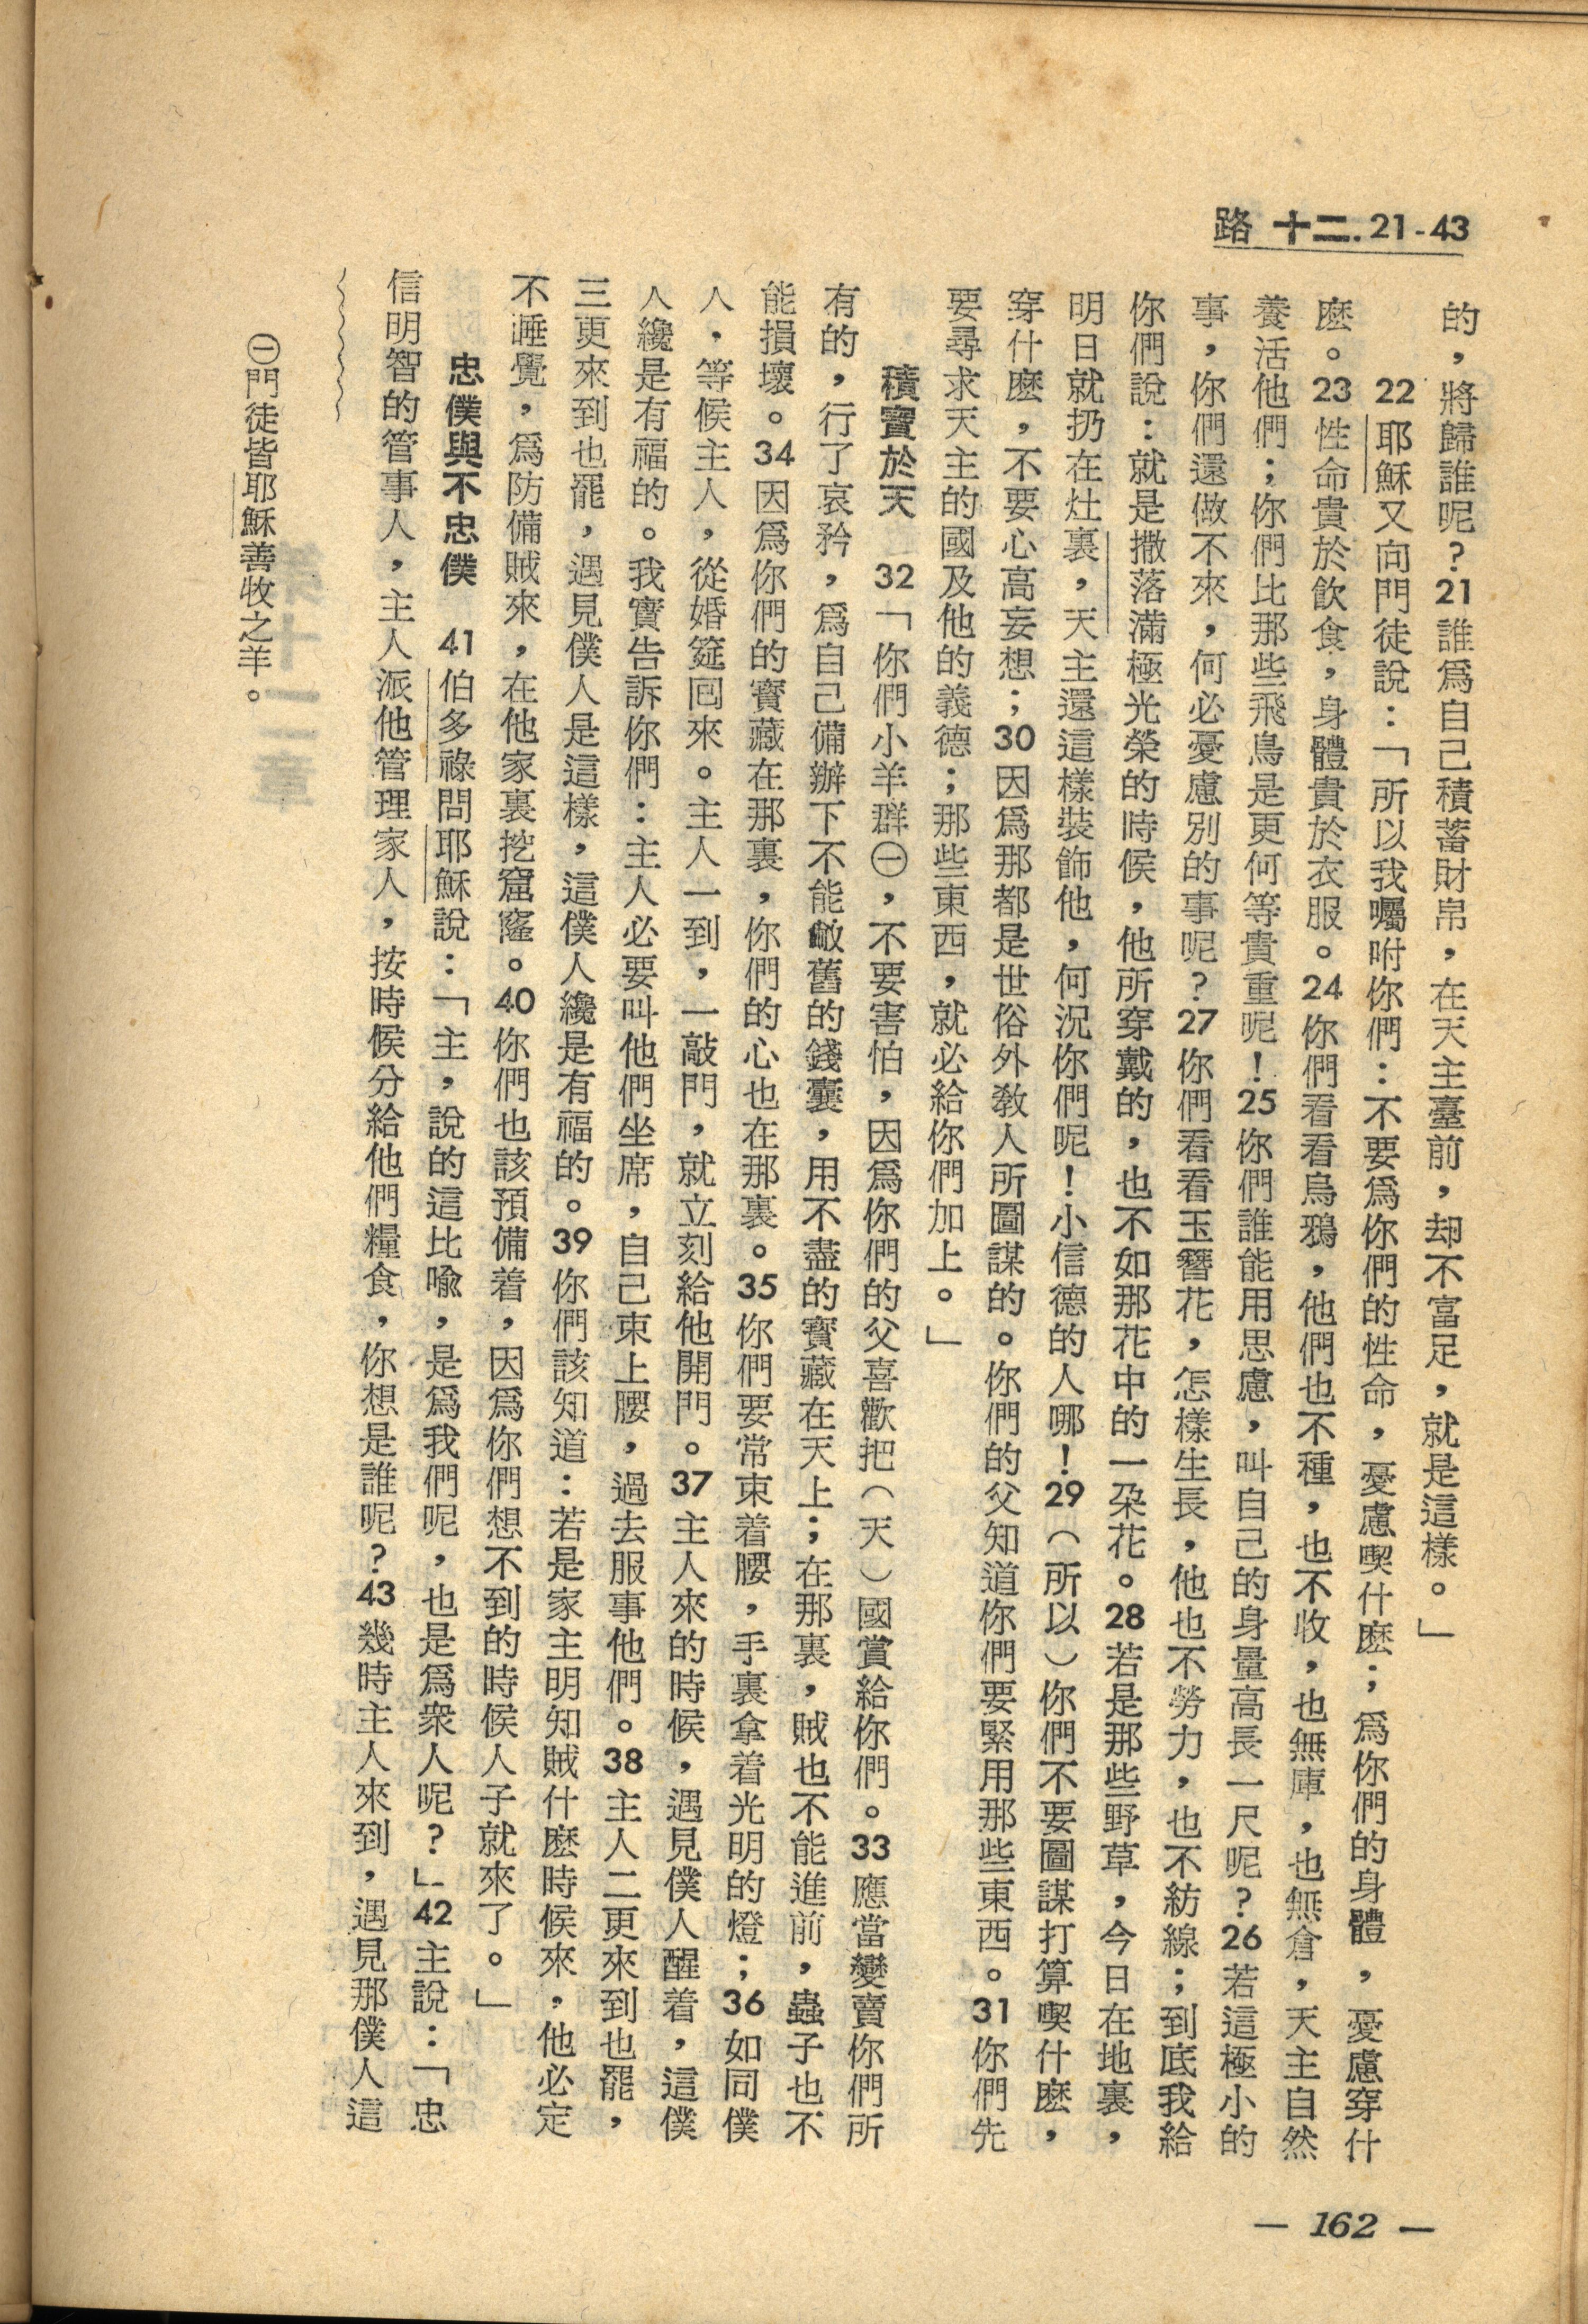 路 十二. 21-43
的，將歸誰呢？21誰爲自己積蓄財帛，在天主臺前，却不富足，就是這樣。」
22耶穌又向門徒說：「所以我囑咐你們：不要爲你們的性命，憂慮喫什麽；爲你們的身體，憂慮穿什
麽。23性命貴於飲食，身體貴於衣服。24你們看看烏鴉，他們也不種，也不收，也無庫，也無倉，天主自然
養活他們；你們比那些飛鳥是更何等貴重呢！25你們誰能用思慮，叫自己的身量高長一尺呢？26若這極小的
事，你們還做不來，何必憂慮別的事呢？27你們看看玉簪花，怎樣生長，他也不勞力，也不紡線；到底我給
你們說：就是撒落滿極光榮的時候，他所穿戴的，也不如那花中的一朶花。28若是那些野草，今日在地裏，
明日就扔在灶裏，天主還這樣裝飾他，何況你們呢！小信德的人哪！29（所以）你們不要圖謀打算喫什麽，
穿什麽，不要心高妄想；30因爲那都是世俗外敎人所圖謀的。你們的父知道你們要緊用那些東西。31你們先
要尋求天主的國及他的義德；那些東西，就必給你們加上。」
積寶於天　32「你們小羊群㊀，不要害怕，因爲你們的父喜歡把（天）國賞給你們。33應當變賣你們所
有的，行了哀矜，爲自己備辦下不能敝舊的錢囊，用不盡的寶藏在天上；在那裏，賊也不能進前，蟲子也不
能損壞。34因爲你們的寶藏在那裏，你們的心也在那裏。35你們要常束着腰，手裏拿着光明的燈；36如同僕
人，等候主人，從婚筵囘來。主人一到，一敲門，就立刻給他開門。37主人來的時候，遇見僕人醒着，這僕
人纔是有福的。我實告訴你們：主人必要叫他們坐席，自己束上腰，過去服事他們。38主人二更來到也罷，
三更來到也罷，遇見僕人是這樣，這僕人纔是有福的。39你們該知道：若是家主明知賊什麽時候來，他必定
不睡覺，爲防備賊來，在他家裏挖窟窿。40你們也該預備着，因爲你們想不到的時候人子就來了。」
忠僕與不忠僕　41伯多祿問耶穌說：「主，說的這比喩，是爲我們呢，也是爲衆人呢？」42主說：「忠
信明智的管事人，主人派他管理家人，按時候分給他們糧食，你想是誰呢？43幾時主人來到，遇見那僕人這
㊀門徒皆耶穌善牧之羊。
— 162 —